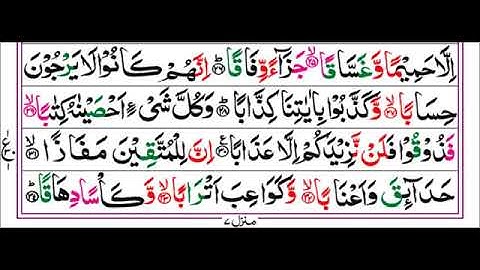 اِلَّا حَمِيْمًا وَّغَسَّاقًا ۙ﴿۲۵﴾ جَزَآءً وِّفَاقًا ؕ﴿۲۶﴾ اِنَّهُمْ كَانُوْا لَا يَرْجُوْنَ
حِسَابًا ۙ﴿۲۷﴾ وَّكَذَّبُوْا بِاٰيٰتِنَا كِذَّابًا ؕ﴿۲۸﴾ وَكُلَّ شَيْءٍ اَحْصَيْنٰهُ كِتٰبًا ۙ﴿۲۹﴾
فَذُوْقُوْا فَلَنْ نَّزِيْدَكُمْ اِلَّا عَذَابًا ﴿۳۰﴾ اِنَّ لِلْمُتَّقِيْنَ مَفَازًا ۙ﴿۳۱﴾
حَدَآئِقَ وَاَعْنَابًا ۙ﴿۳۲﴾ وَّكَوَاعِبَ اَتْرَابًا ۙ﴿۳۳﴾ وَّكَاْسًا دِهَاقًا ؕ﴿۳۴﴾
منزل ۷